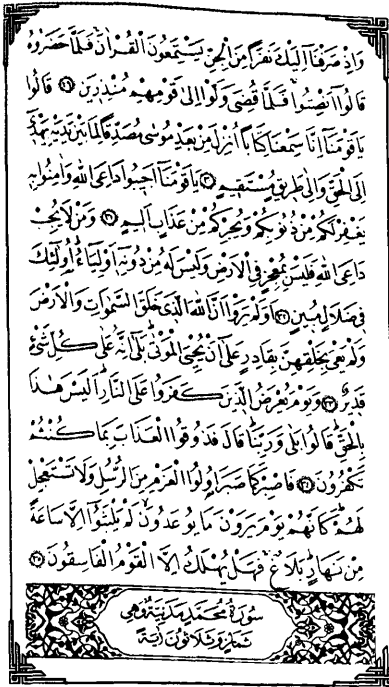 وَاِذْ صَرَفْنَٓا اِلَيْكَ نَفَرًا مِنَ الْجِنِّ يَسْتَمِعُونَ الْقُرْاٰنَ فَلَمَّا حَضَرُوهُ
قَالُٓوا اَنْصِتُوا فَلَمَّا قُضِىَ وَلَّوْا اِلٰى قَوْمِهِمْ مُنْذِرِينَ ﴿٢٩﴾ قَالُوا
يَا قَوْمَنَٓا اِنَّا سَمِعْنَا كِتَابًا اُنْزِلَ مِنْ بَعْدِ مُوسٰى مُصَدِّقًا لِمَا بَيْنَ يَدَيْهِ يَهْدِٓى
اِلَى الْحَقِّ وَاِلٰى طَرِيقٍ مُسْتَقِيمٍ ﴿٣٠﴾ يَا قَوْمَنَٓا اَجِيبُوا دَاعِىَ اللّٰهِ وَاٰمِنُوا بِهِ
يَغْفِرْ لَكُمْ مِنْ ذُنُوبِكُمْ وَيُجِرْكُمْ مِنْ عَذَابٍ اَلِيمٍ ﴿٣١﴾ وَمَنْ لَا يُجِبْ
دَاعِىَ اللّٰهِ فَلَيْسَ بِمُعْجِزٍ فِى الْاَرْضِ وَلَيْسَ لَهُ مِنْ دُونِهِٓ اَوْلِيَٓاءُ اُو۬لٰٓئِكَ
فِى ضَلَالٍ مُبِينٍ ﴿٣٢﴾ اَوَلَمْ يَرَوْا اَنَّ اللّٰهَ الَّذِى خَلَقَ السَّمٰوَاتِ وَالْاَرْضَ
وَلَمْ يَعْىَ بِخَلْقِهِنَّ بِقَادِرٍ عَلٰٓى اَنْ يُحْيِىَ الْمَوْتٰى بَلٰٓى اِنَّهُ عَلٰى كُلِّ شَىْءٍ
قَدِيرٌ ﴿٣٣﴾ وَيَوْمَ يُعْرَضُ الَّذِينَ كَفَرُوا عَلَى النَّارِ اَلَيْسَ هٰذَا
بِالْحَقِّ قَالُوا بَلٰى وَرَبِّنَا قَالَ فَذُوقُوا الْعَذَابَ بِمَا كُنْتُمْ
تَكْفُرُونَ ﴿٣٤﴾ فَاصْبِرْ كَمَا صَبَرَ اُو۬لُوا الْعَزْمِ مِنَ الرُّسُلِ وَلَا تَسْتَعْجِلْ
لَهُمْ كَاَنَّهُمْ يَوْمَ يَرَوْنَ مَا يُوعَدُونَ لَمْ يَلْبَثُٓوا اِلَّا سَاعَةً
مِنْ نَهَارٍ بَلَاغٌ فَهَلْ يُهْلَكُ اِلَّا الْقَوْمُ الْفَاسِقُونَ ﴿٣٥﴾
سُورَةُ مُحَمَّدٍ مَدَنِيَّةٌ وَهِىَ
ثَمَانٍ وَثَلَاثُونَ اٰيَةً